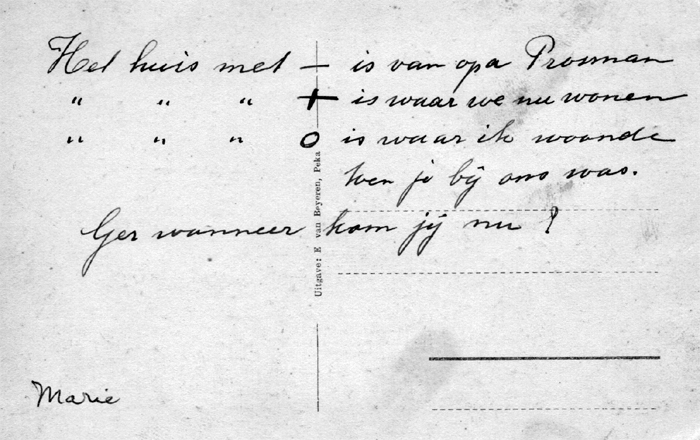 Het huis met — is van opa Prosman
" " " + is waar we nu wonen
" " " o is waar ik woonde
toen je bij ons was.
Ger wanneer kom jij nu ?
Marie
Uitgave: E van Beyeren, Peka